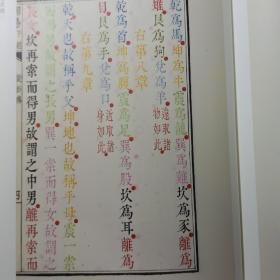 乾爲馬坤爲牛震爲龍巽爲雞坎爲豕離爲
雉艮爲狗兌爲羊
遠取諸
物如此
右第八章
乾爲首坤爲腹震爲足巽爲股坎爲耳離爲
目艮爲手兌爲口
近取諸
身如此
右第九章
乾天也故稱乎父坤地也故稱乎母震一索
而得男故謂之長男巽一索而得女故謂之
長女坎再索而得男故謂之中男離再索而